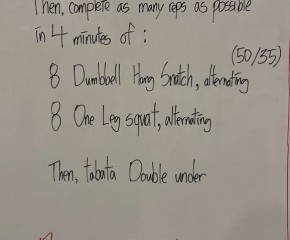 Then, complete as many reps as possible
in 4 minutes of :
(50/35)
8 Dumbbell Hang Snatch, alternating
8 One Leg squat, alternating
Then, tabata Double under